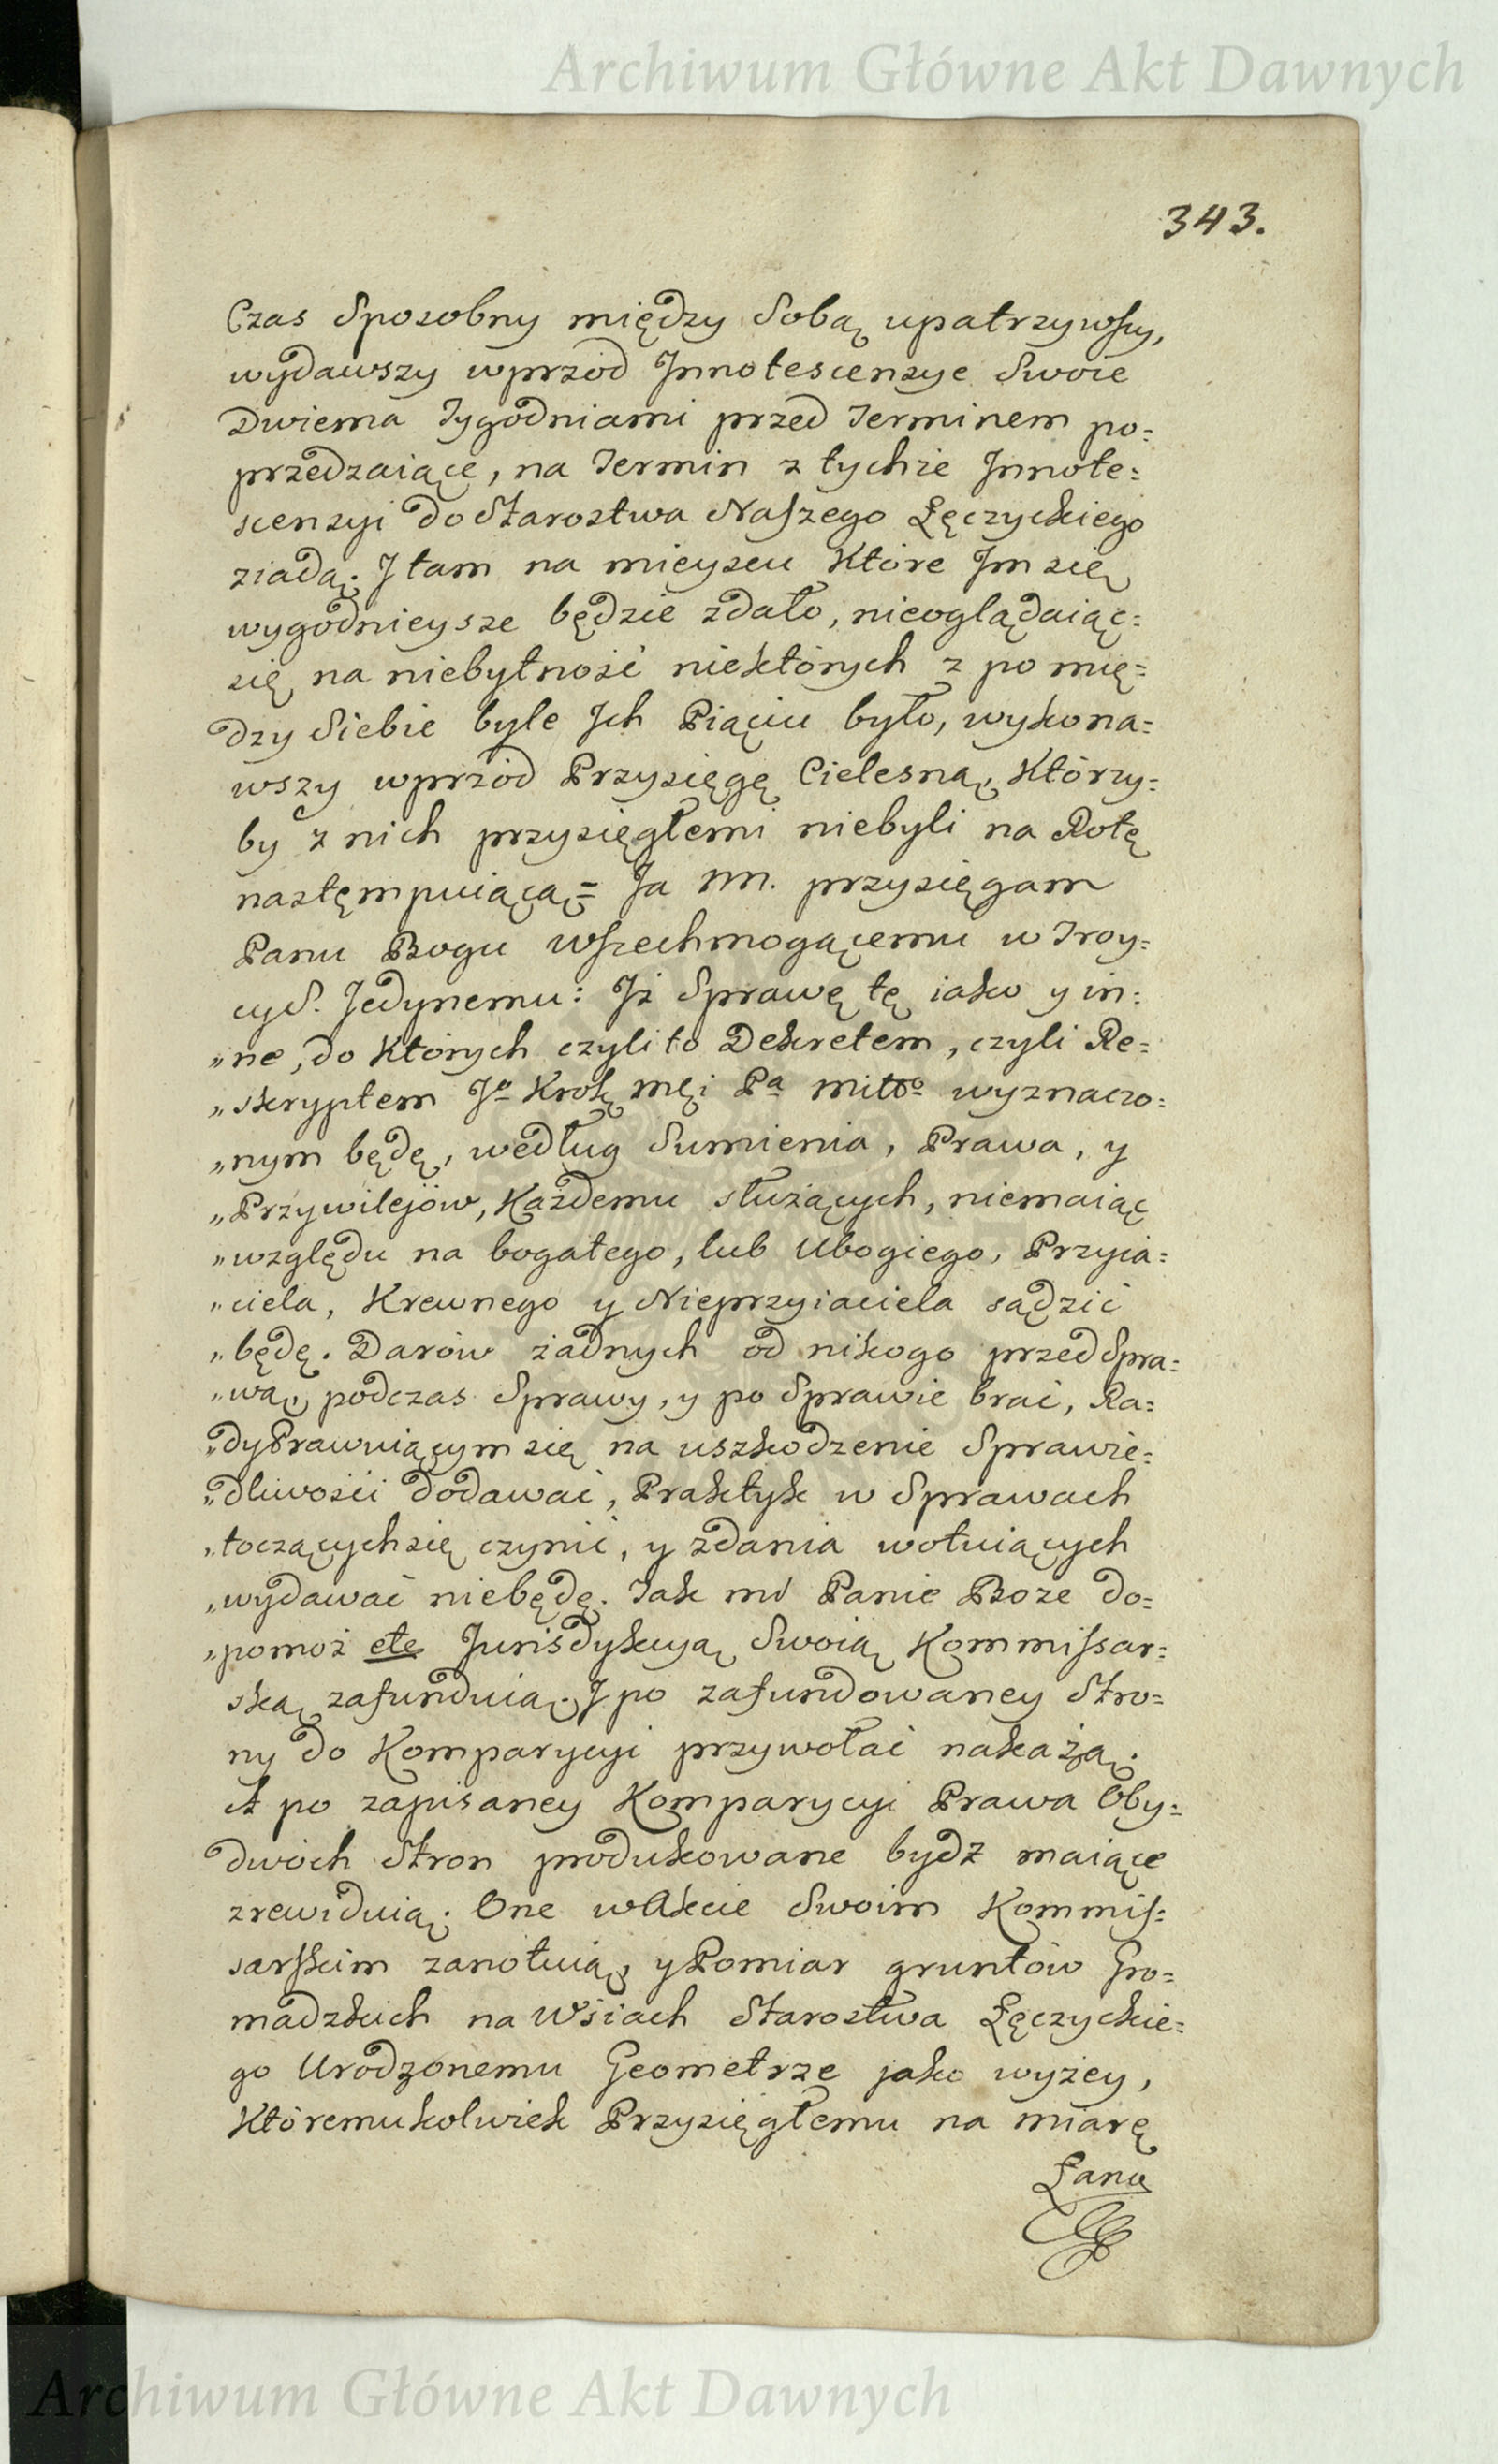 Archiwum Główne Akt Dawnych
343.
Czas Sposobny między Sobą upatrzywszy,
wydawszy wprzód Innotescensye Swoie
Dwiema Tygodniami przed Terminem po=
przedzaiące, na Termin z tychże Innote=
scensyi do Starostwa Naszego Łęczyckiego
ziadą. I tam na mieyscu Które Im się
wygodnieysze będzie zdało, nieoglądaiąc=
się na niebytność niektórych z po mię=
dzy Siebie byle Ich Piąciu było, wykona=
wszy wprzód Przysięgę Cielesną, Którzy=
by z nich przysięgłemi niebyli na Rotę
następuiącą= Ja NN. przysięgam
Panu Bogu Wszechmogącemu w Troy=
cy S. Jedynemu: Iż Sprawę tę iako y in:
„ne, do Których czyli to Dekretem, czyli Re=
„skryptem Jo Krolę mći Pa miłto wyznaczo=
„nym będę, według Sumienia, Prawa, y
„Przywilejów, Każdemu służących, niemaiąc
„względu na bogatego, lub Ubogiego, Przyia=
„ciela, Krewnego y Nieprzyiaciela sądzić
„będę. Darów żadnych od nikogo przed Spra=
„wą, podczas Sprawy, y po Sprawie brać, Ra=
„dy Prawuiącym się na uszkodzenie Sprawie=
„dliwości dodawać, Praktyk w Sprawach
„toczących się czynić, y zdania wotuiących
„wydawać niebędę. Tak mi Panie Boże do=
„pomoż etc Jurisdykcyą Swoią Kommissar=
ską zafunduią. I po zafundowaney Stro=
ny do Komparycyi przywołać nakażą.
A po zapisaney Komparycyi Prawa Oby=
dwóch Stron produkowane bydź maiące
zrewiduią. One w Akcie Swoim Kommis=
sarskim zanotuią, y Pomiar gruntów Gro=
madzkich na Wsiach Starostwa Łęczyckie=
go Urodzonemu Geometrze jako wyżey,
Któremukolwiek Przysięgłemu na miarę
Łanu
Archiwum Główne Akt Dawnych